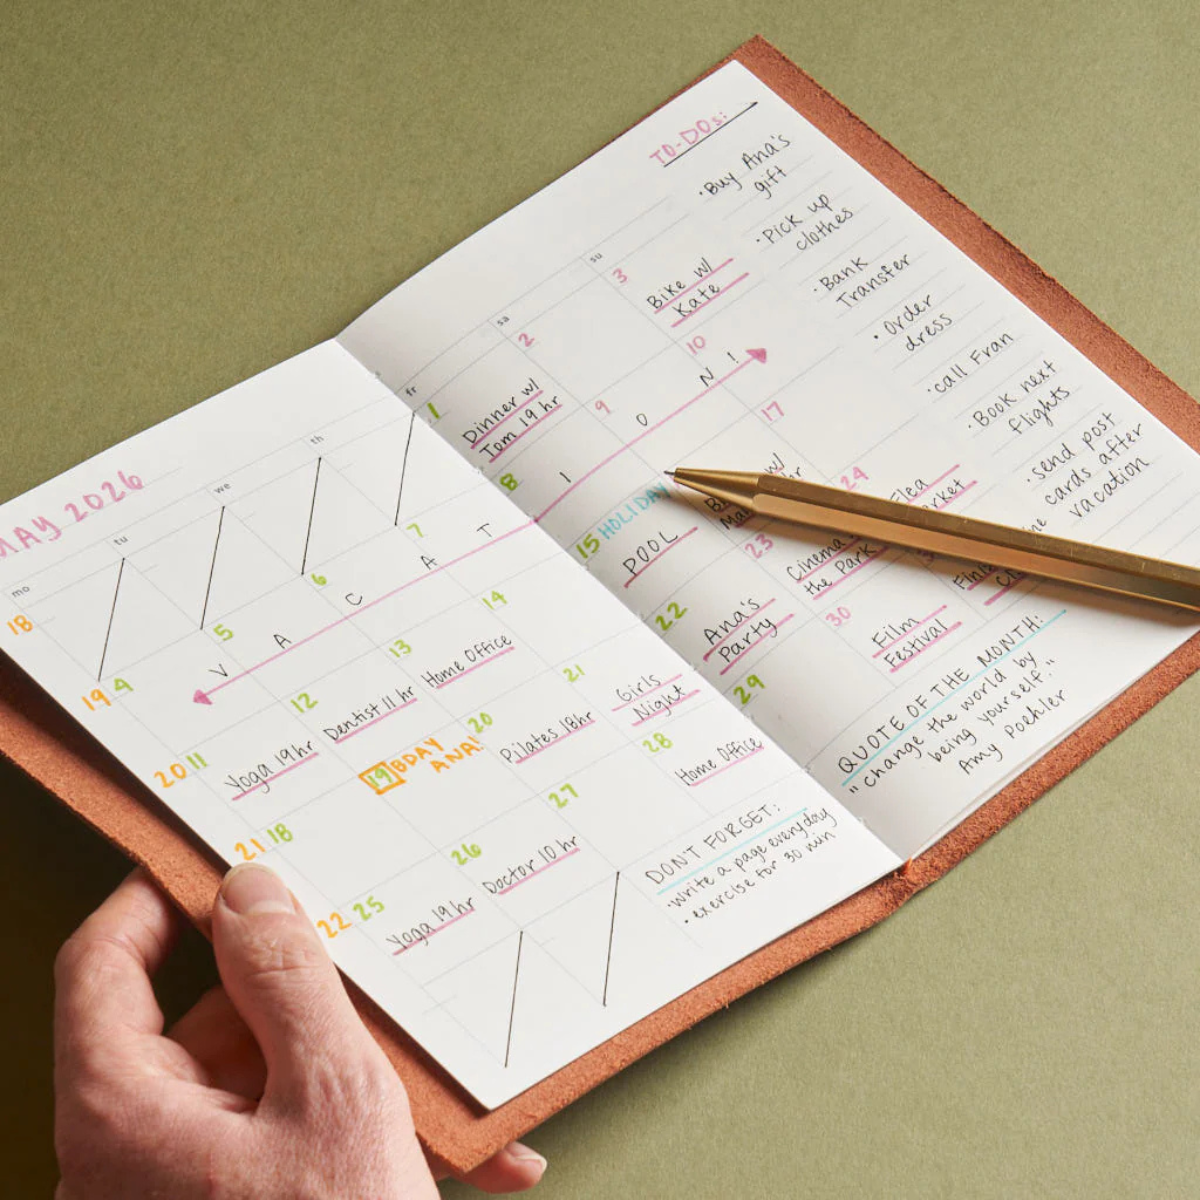 MAY 2026
mo
tu
we
th
18
19
4
5
6
7
V A C A T
20
11
12
13
14
Yoga 19hr
Dentist 11 hr
Home Office
21
18
19
BDAY
ANA!
20
Pilates 18hr
21
Girls
Night
22
25
Yoga 19hr
26
Doctor 10 hr
27
28
Home Office
DON'T FORGET:
·Write a page everyday
·exercise for 30 min
fr
sa
su
1
2
3
Dinner w/
Tom 19 hr
Bike w/
Kate
8
9
10
I O N !
15
HOLIDAY
POOL
w/
hr
17
22
Ana's
Party
23
Cinema
the Park
24
Flea
29
30
Film
Festival
TO-DOs:
·Buy Ana's
gift
·Pick up
clothes
·Bank
Transfer
·Order
dress
·call Fran
·Book next
flights
·send post
cards after
vacation
QUOTE OF THE MONTH:
"change the world by
being yourself."
Amy Poehler